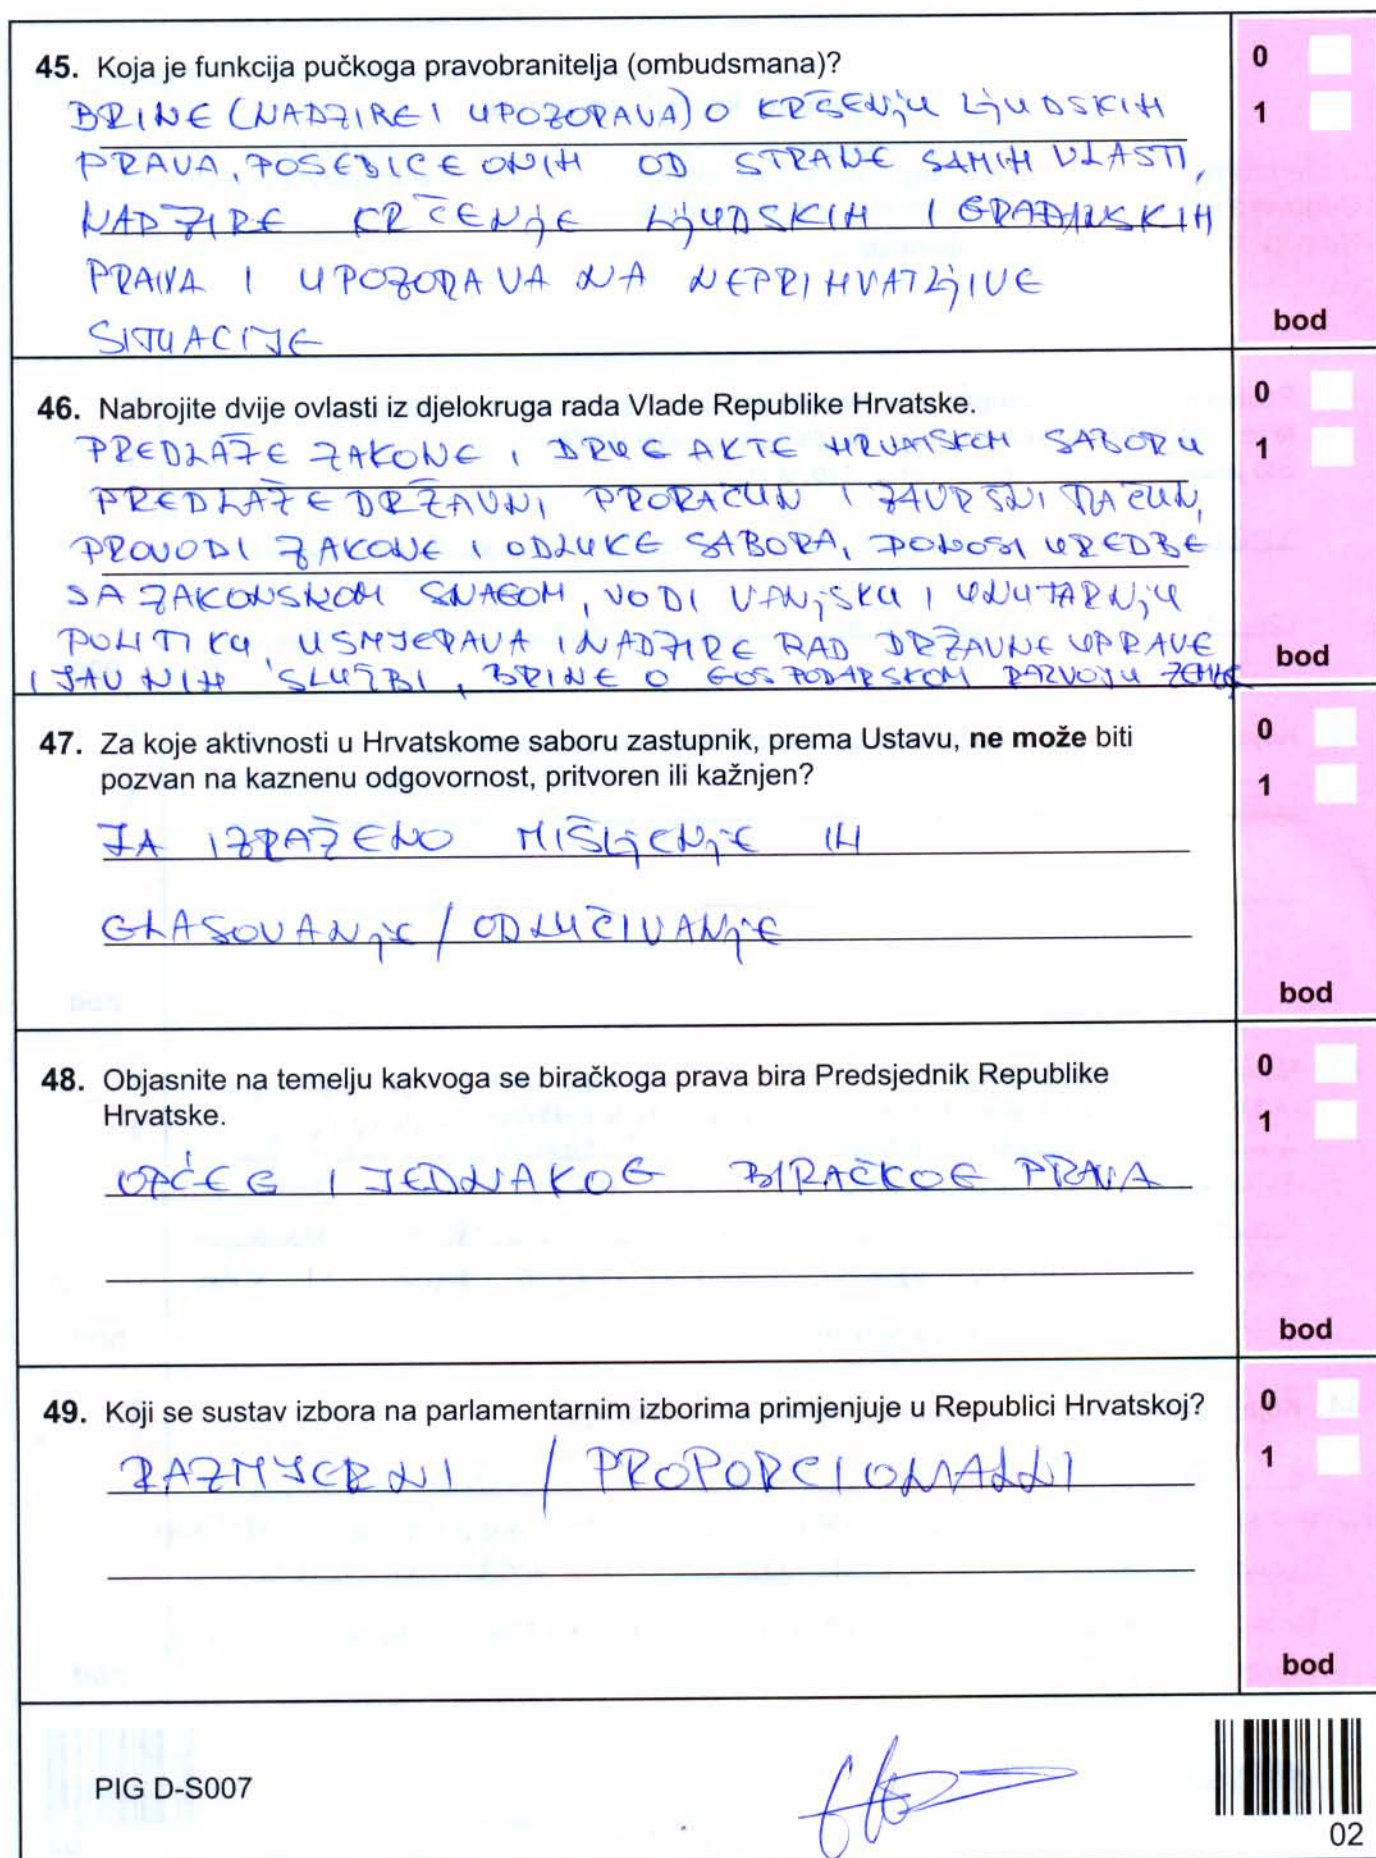 45. Koja je funkcija pučkoga pravobranitelja (ombudsmana)?
0
BRINE (NADZIRE I UPOZORAVA) O KRŠENJU LJUDSKIH
1
PRAVA, POSEBICE ONIH OD STRANE SAMIH VLASTI,
NADZIRE KRČENJE LJUDSKIH I GRAĐANSKIH
PRAVA I UPOZORAVA NA NEPRIHVATLJIVE
SITUACIJE
bod
46. Nabrojite dvije ovlasti iz djelokruga rada Vlade Republike Hrvatske.
0
PREDLAŽE ZAKONE I DRUGE AKTE HRVATSKOM SABORU
1
PREDLAŽE DRŽAVNI PRORAČUN I ZAVRŠNI RAČUN,
PROVODI ZAKONE I ODLUKE SABORA, DONOSI UREDBE
SA ZAKONSKOM SNAGOM, VODI VANJSKU I UNUTARNJU
POLITIKU, USMJERAVA I NADZIRE RAD DRŽAVNE UPRAVE
I JAVNIH SLUŽBI, BRINE O GOSPODARSKOM RAZVOJU ZEMLJE
bod
47. Za koje aktivnosti u Hrvatskome saboru zastupnik, prema Ustavu, ne može biti
pozvan na kaznenu odgovornost, pritvoren ili kažnjen?
0
1
ZA IZRAŽENO MIŠLJENJE ILI
GLASOVANJE / ODLUČIVANJE
bod
48. Objasnite na temelju kakvoga se biračkoga prava bira Predsjednik Republike
Hrvatske.
0
1
OPĆEG I JEDNAKOG BIRAČKOG PRAVA
bod
49. Koji se sustav izbora na parlamentarnim izborima primjenjuje u Republici Hrvatskoj?
0
RAZMJERNI / PROPORCIONALNI
1
bod
PIG D-S007
02